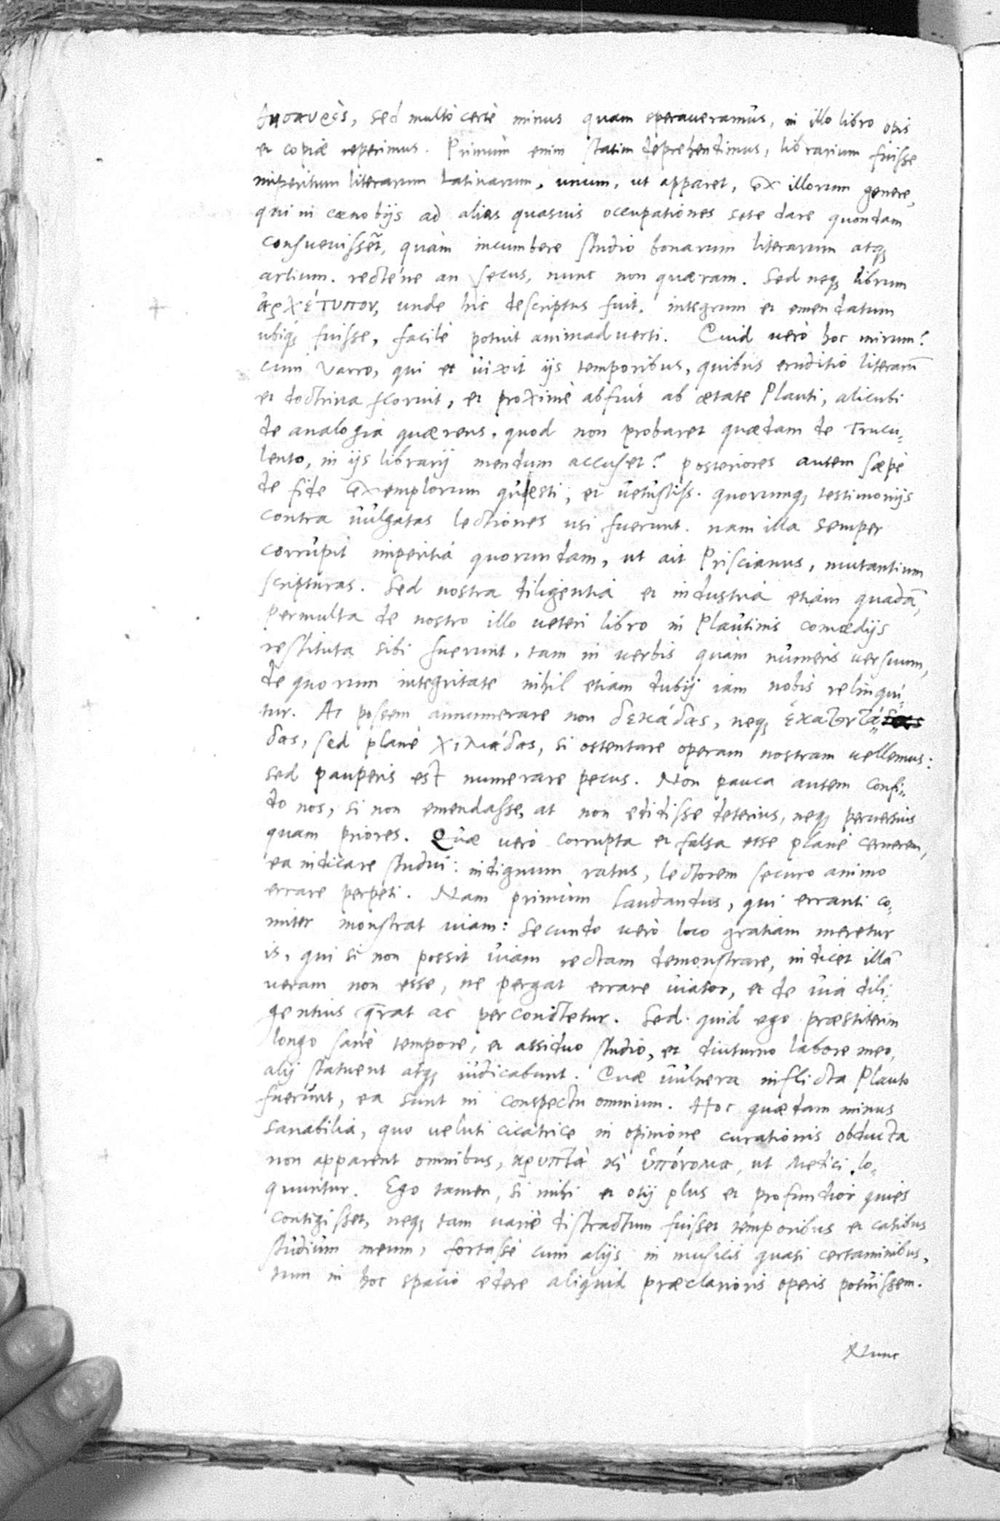 θησαυρὸς, sed multò certè minus quam speraueramus, in illo libro opis
et copiæ reperimus. Primùm enim statim deprehendimus, librarium fuisse
imperitum literarum latinarum, unum, ut apparet, ex illorum genere,
qui in cœnobijs ad alias quasuis occupationes sese dare quondam
consueuissēt, quàm incumbere studio bonarum literarum atq;
artium. recténe an secus, nunc non quæram. Sed neq; librum
ἀρχέτυπον, unde hic descriptus fuit, integrum et emendatum
ubiq; fuisse, facilè potuit animaduerti. Quid uerò hoc mirum?
cùm Varro, qui et uixit ijs temporibus, quibus eruditio literarū
et doctrina floruit, et proximè abfuit ab ætate Plauti, alicubi
de analogia quærens, quod non probaret quædam de Trucu-
lento, in ijs librarij mendum accuset? posteriores autem sæpè
de fide exemplorum questi, et uetustiss. quorumq; testimonijs
contra uulgatas lectiones usi fuerunt. nam illa semper
corrupit imperitia quorundam, ut ait Priscianus, mutantium
scripturas. Sed nostra diligentia et industria etiam quadā,
permulta de nostro illo ueteri libro in Plautinis comœdijs
restituta sibi fuerunt, tam in uerbis quàm numeris uersuum,
de quorum integritate nihil etiam dubij iam nobis relinqui-
tur. Ac possem annumerare non δεκάδας, neq; ἑκατοντά-
δας, sed planè χιλιάδας, si ostentare operam nostram uellemus:
sed pauperis est numerare pecus. Non pauca autem confi-
do nos, si non emendasse, at non edidisse deterius, neq; peruersius
quam priores. Quæ uerò corrupta et falsa esse planè cernerem,
ea indicare studui: indignum ratus, lectorem securo animo
errare perpeti. Nam primùm laudandus, qui erranti co-
miter monstrat uiam: secundo uerò loco gratiam meretur
is, qui si non possit uiam rectam demonstrare, indicet illā
ueram non esse, ne pergat errare uiator, et de uia dili-
gentius q̄rat ac percontetur. Sed quid ego præstiterim
longo sanè tempore, et assiduo studio, et diuturno labore meo,
alij statuent atq; iudicabunt. Quæ uulnera inflicta Plauto
fuerunt, ea sunt in conspectu omnium. Hoc quædam minus
sanabilia, quo ueluti cicatrice in opinione curationis obducta
non apparent omnibus, κρυπτὰ κὶ ὑπόνομα, ut Medici lo-
quuntur. Ego tamen, si mihi et otij plus et profundior quies
contigisset, neq; tam uariè distractum fuisset temporibus et casibus
studium meum, fortasse cum alijs in musicis quasi certaminibus,
tum in hoc spacio edere aliquid præclarioris operis potuissem.
Nunc